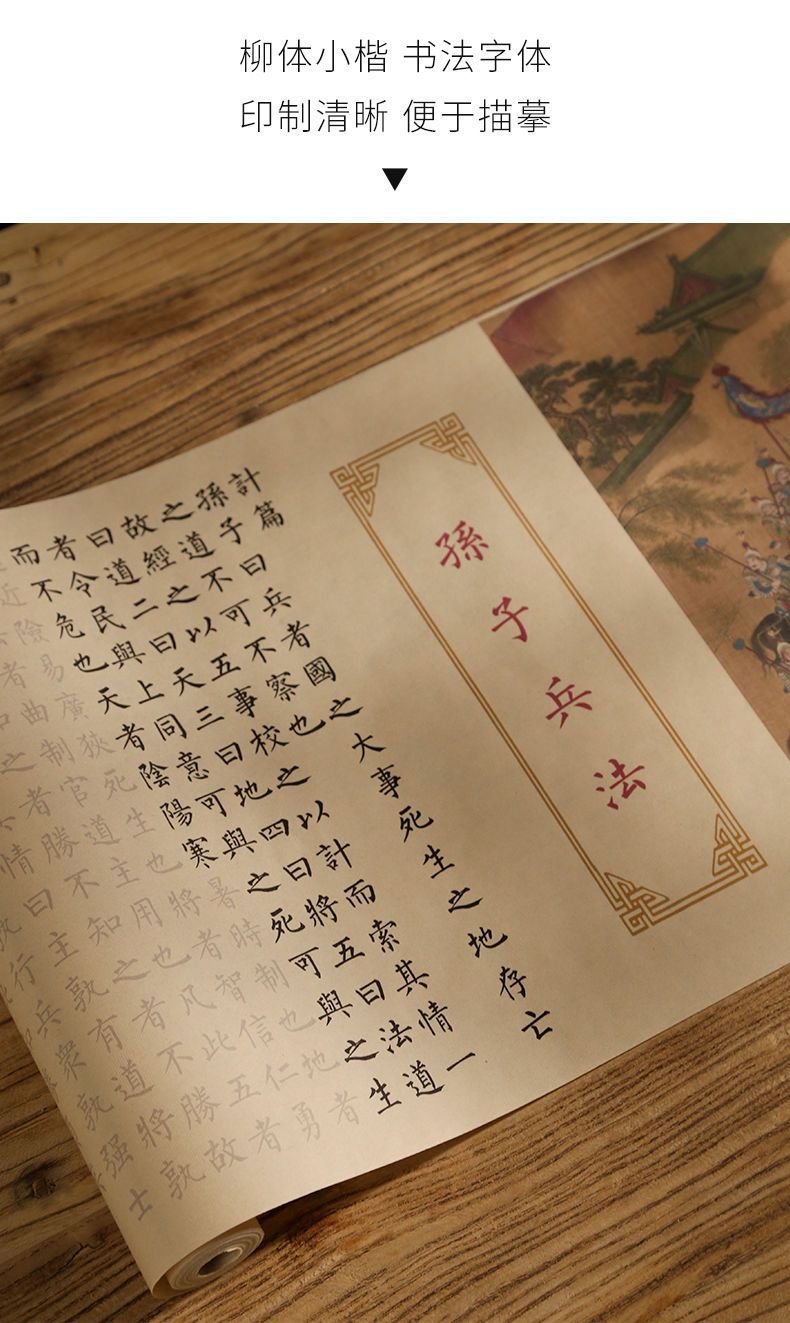 柳体小楷 书法字体
印制清晰 便于描摹
孫子兵法
計篇
孫子曰兵者國之大事死生之地存亡
之道不可不察也
故經之以五事校之以計而索其情一
曰道二曰天三曰地四曰將五曰法道
者令民與上同意可與之死可與之生
而不危也天者陰陽寒暑時制也地者
近險易廣狹死生也將者智信仁勇
者曲制官道主用也凡此五者
之者勝不知之者不勝故
情曰主孰有道將孰
行兵衆孰强士